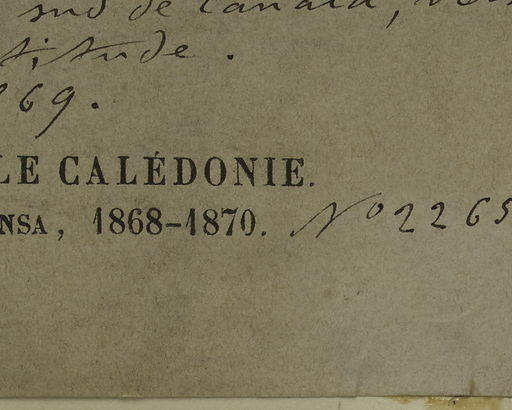 sud de Canala, vers
titude.
869.
LE CALÉDONIE.
NSA, 1868-1870. No 2265